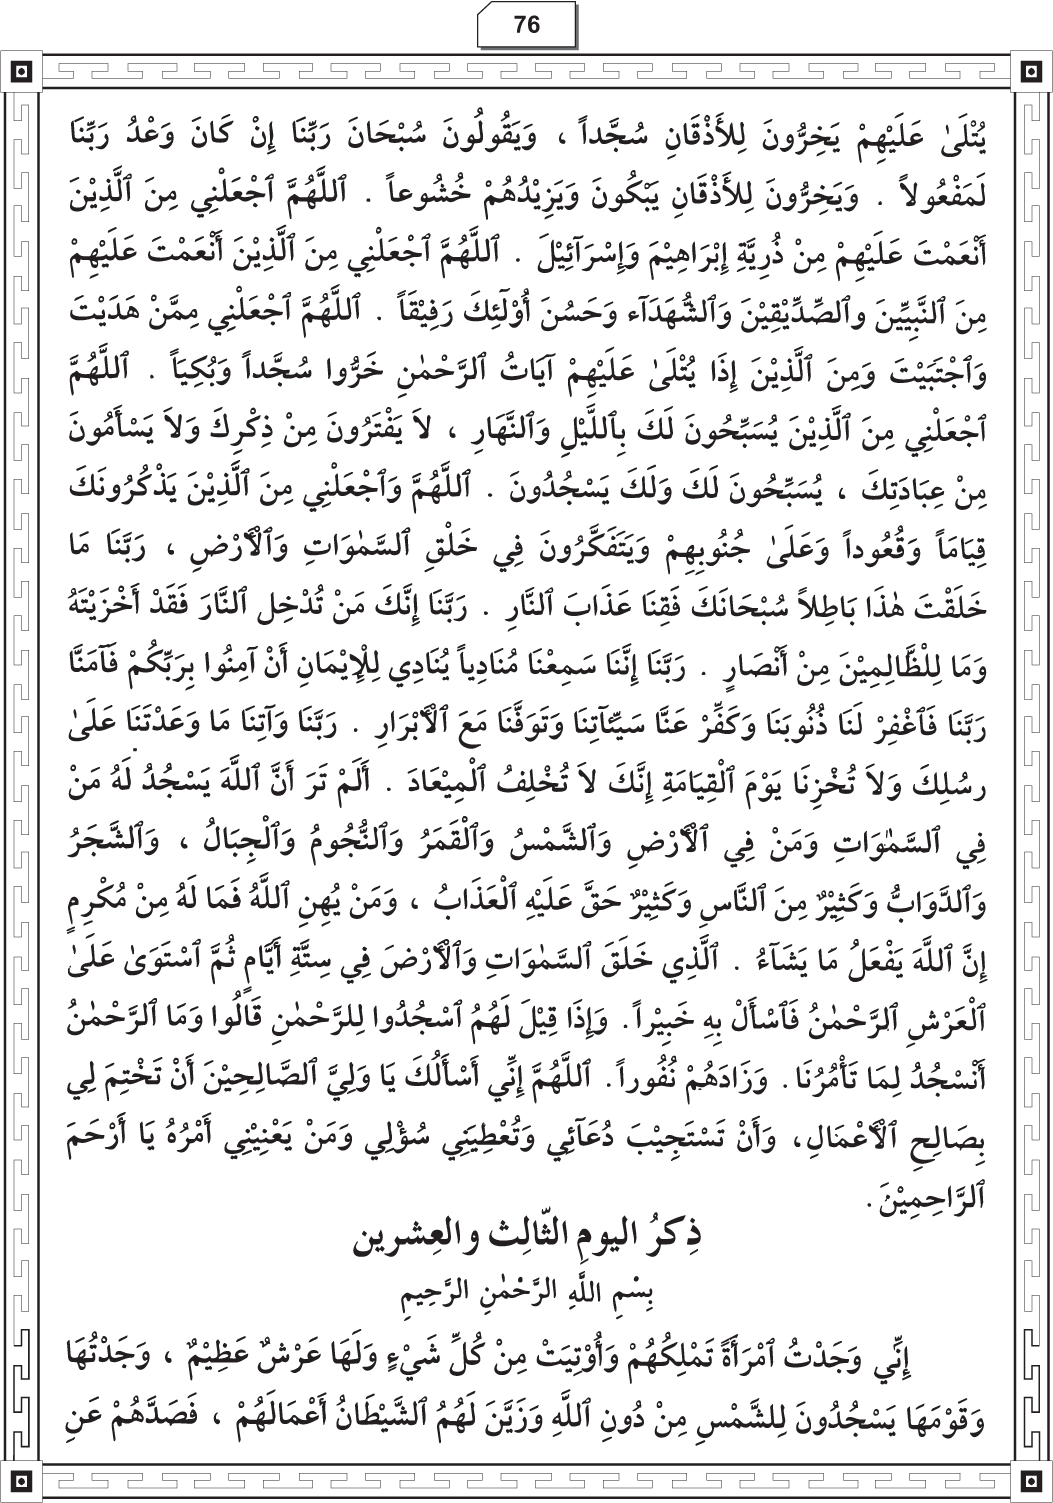 76
يُتْلَىٰ عَلَيْهِمْ يَخِرُّونَ لِلأَذْقَانِ سُجَّداً ، وَيَقُولُونَ سُبْحَانَ رَبِّنَا إِنْ كَانَ وَعْدُ رَبِّنَا
لَمَفْعُولاً . وَيَخِرُّونَ لِلأَذْقَانِ يَبْكُونَ وَيَزِيْدُهُمْ خُشُوعاً . ٱللَّهُمَّ ٱجْعَلْنِي مِنَ ٱلَّذِيْنَ
أَنْعَمْتَ عَلَيْهِمْ مِنْ ذُرِيَّةِ إِبْرَاهِيْمَ وَإِسْرَآئِيْلَ . ٱللَّهُمَّ ٱجْعَلْنِي مِنَ ٱلَّذِيْنَ أَنْعَمْتَ عَلَيْهِمْ
مِنَ ٱلنَّبِيِّينَ وٱلصِّدِّيْقِيْنَ وَٱلشُّهَدَآء وَحَسُنَ أُوْلَٰئِكَ رَفِيْقَاً . ٱللَّهُمَّ ٱجْعَلْنِي مِمَّنْ هَدَيْتَ
وَٱجْتَبَيْتَ وَمِنَ ٱلَّذِيْنَ إِذَا يُتْلَىٰ عَلَيْهِمْ آيَاتُ ٱلرَّحْمٰنِ خَرُّوا سُجَّداً وَبُكِيَاً . ٱللَّهُمَّ
ٱجْعَلْنِي مِنَ ٱلَّذِيْنَ يُسَبِّحُونَ لَكَ بِٱللَّيْلِ وَٱلنَّهَارِ ، لاَ يَفْتَرُونَ مِنْ ذِكْرِكَ وَلاَ يَسْأَمُونَ
مِنْ عِبَادَتِكَ ، يُسَبِّحُونَ لَكَ وَلَكَ يَسْجُدُونَ . ٱللَّهُمَّ وَٱجْعَلْنِي مِنَ ٱلَّذِيْنَ يَذْكُرُونَكَ
قِيَامَاً وَقُعُوداً وَعَلَىٰ جُنُوبِهِمْ وَيَتَفَكَّرُونَ فِي خَلْقِ ٱلسَّمٰوَاتِ وَٱلْأَرْضِ ، رَبَّنَا مَا
خَلَقْتَ هٰذَا بَاطِلاً سُبْحَانَكَ فَقِنَا عَذَابَ ٱلنَّارِ . رَبَّنَا إِنَّكَ مَنْ تُدْخِلِ ٱلنَّارَ فَقَدْ أَخْزَيْتَهُ
وَمَا لِلْظَّالِمِيْنَ مِنْ أَنْصَارٍ . رَبَّنَا إِنَّنَا سَمِعْنَا مُنَادِياً يُنَادِي لِلْإِيْمَانِ أَنْ آمِنُوا بِرَبِّكُمْ فَآمَنَّا
رَبَّنَا فَٱغْفِرْ لَنَا ذُنُوبَنَا وَكَفِّرْ عَنَّا سَيِّئآتِنَا وَتَوَفَّنَا مَعَ ٱلْأَبْرَارِ . رَبَّنَا وَآتِنَا مَا وَعَدْتَنَا عَلَىٰ
رسُلِكَ وَلاَ تُخْزِنَا يَوْمَ ٱلْقِيَامَةِ إِنَّكَ لاَ تُخْلِفُ ٱلْمِيْعَادَ . أَلَمْ تَرَ أَنَّ ٱللَّهَ يَسْجُدُ لَهُ مَنْ
فِي ٱلسَّمٰوَاتِ وَمَنْ فِي ٱلْأَرْضِ وَٱلشَّمْسُ وَٱلْقَمَرُ وَٱلنُّجُومُ وَٱلْجِبَالُ ، وَٱلشَّجَرُ
وَٱلدَّوَابُّ وَكَثِيْرٌ مِنَ ٱلنَّاسِ وَكَثِيْرٌ حَقَّ عَلَيْهِ ٱلْعَذَابُ ، وَمَنْ يُهِنِ ٱللَّهُ فَمَا لَهُ مِنْ مُكْرِمٍ
إِنَّ ٱللَّهَ يَفْعَلُ مَا يَشَآءُ . ٱلَّذِي خَلَقَ ٱلسَّمٰوَاتِ وَٱلْأَرْضَ فِي سِتَّةِ أَيَّامٍ ثُمَّ ٱسْتَوَىٰ عَلَىٰ
ٱلْعَرْشِ ٱلرَّحْمٰنُ فَٱسْأَلْ بِهِ خَبِيْراً. وَإِذَا قِيْلَ لَهُمُ ٱسْجُدُوا لِلرَّحْمٰنِ قَالُوا وَمَا ٱلرَّحْمٰنُ
أَنْسْجُدُ لِمَا تَأْمُرُنَا . وَزَادَهُمْ نُفُوراً. ٱللَّهُمَّ إِنِّي أَسْأَلُكَ يَا وَلِيَّ ٱلصَّالِحِيْنَ أَنْ تَخْتِمَ لِي
بِصَالِحِ ٱلْأَعْمَالِ، وَأَنْ تَسْتَجِيْبَ دُعَآئِي وَتُعْطِيَنِي سُؤْلِي وَمَنْ يَعْنِيْنِي أَمْرُهُ يَا أَرْحَمَ
ٱلرَّاحِمِيْنَ.
ذِكرُ اليومِ الثّالِث والعِشرين
بِسْمِ اللَّهِ الرَّحْمٰنِ الرَّحِيمِ
إِنِّي وَجَدْتُ ٱمْرَأَةً تَمْلِكُهُمْ وَأُوْتِيَتْ مِنْ كُلِّ شَيْءٍ وَلَهَا عَرْشٌ عَظِيْمٌ ، وَجَدْتُهَا
وَقَوْمَهَا يَسْجُدُونَ لِلشَّمْسِ مِنْ دُونِ ٱللَّهِ وَزَيَّنَ لَهُمُ ٱلشَّيْطَانُ أَعْمَالَهُمْ ، فَصَدَّهُمْ عَنِ